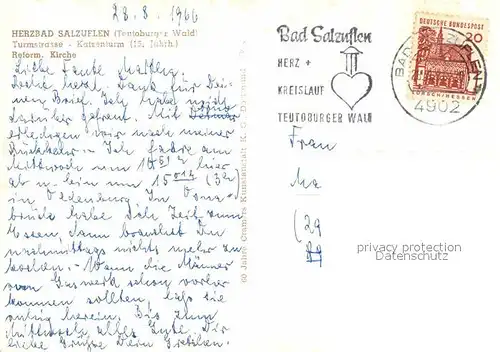 28.8.1966
HERZBAD SALZUFLEN (Teutoburger Wald)
Turmstrasse - Katzenturm (15. Jahrh.)
Reform. Kirche
Liebe Tante
herzl. Dank für Dei-
nen Brief. Ich habe mich
darüber gefreut. Mit
erledigen wir nach meiner
Rückkehr. Ich fahre am
Mittwoch um 10 hier
ab u. bin um 15
in Oldenburg. In Osna-
brück habe ich Zeit zum
Essen, dann brauchst Du
nachmittags nichts mehr zu
kochen. Wenn die Männer
vom Gaswerk schon vorher
kommen sollten, laß sie
ruhig herein. Bis zum
Mittwoch alles Gute. Dir
liebe Grüße Dein
60 Jahre Cramers Kunstanstalt K. G. Dortmund
Bad Salzuflen
HERZ +
KREISLAUF
TEUTOBURGER WALD
BAD SALZUFLEN 1
4902
DEUTSCHE BUNDESPOST
20
LORSCH/HESSEN
Frau
Ma
(29
privacy protection
Datenschutz